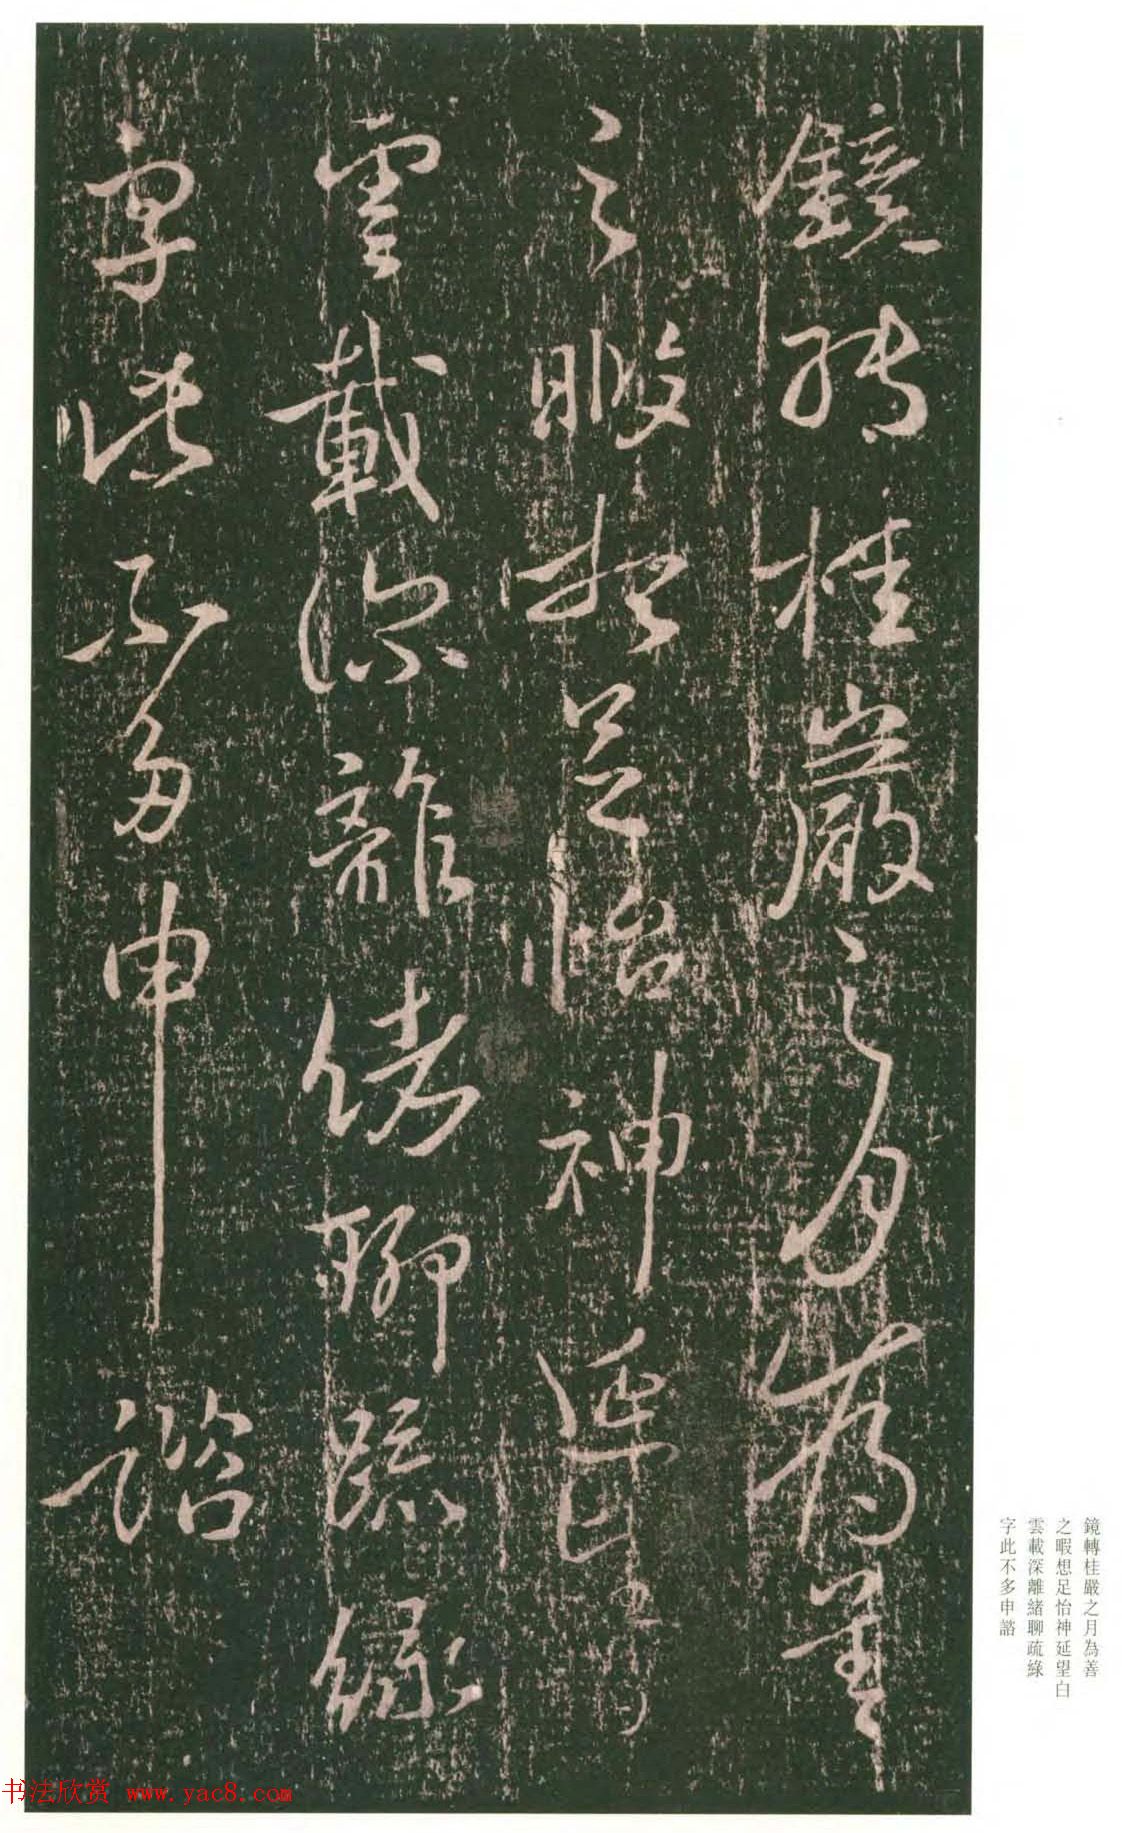 鏡轉桂巖之月為善
之暇想足怡神延望白
雲載深離緒聊疏綠
字此不多申諮
鏡轉桂嚴之月為善
之暇想足怡神延望白
雲載深離緒聊疏綠
字此不多申諮
书法欣赏 www.yac8.com